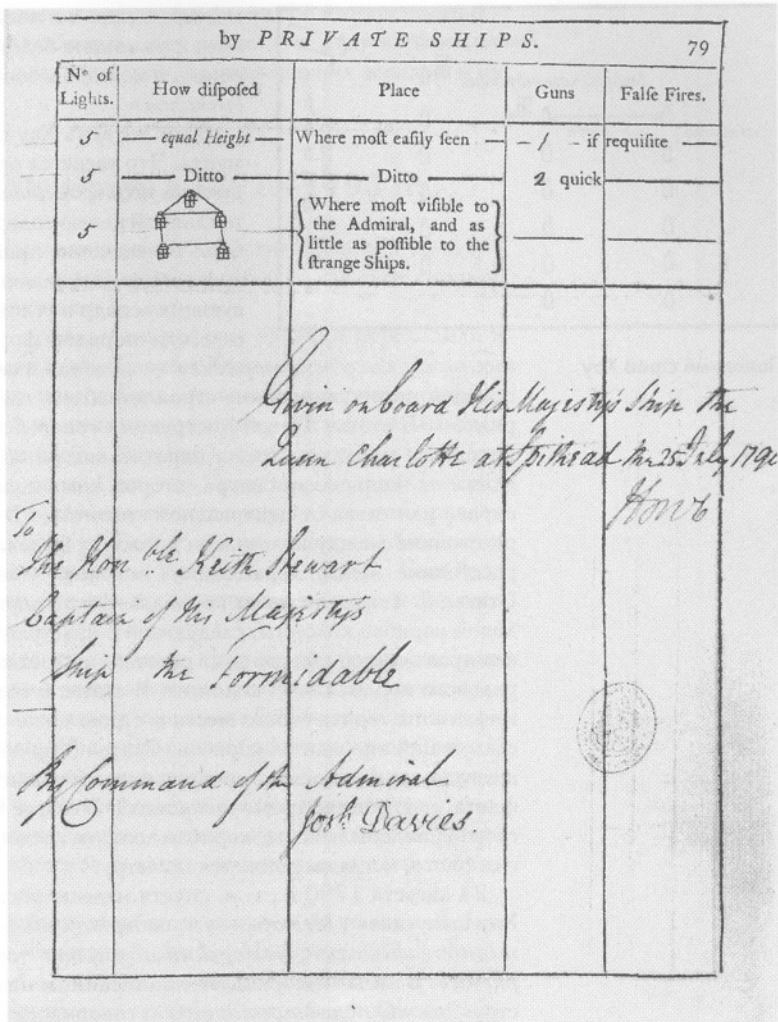 by PRIVATE SHIPS. 79
Nº of Lights. How diſpoſed Place Guns Falſe Fires.
5 equal Height Where moſt eaſily ſeen 1 if requiſite
5 Ditto Ditto 2 quick
5 Where moſt viſible to
the Admiral, and as
little as poſſible to the
ſtrange Ships.
Given onboard His Majesty's Ship the
Queen Charlotte at Spithead the 25 July 1790
Howe
To
The Honble Keith Stewart
Captain of His Majesty's
Ship the Formidable
By Command of the Admiral
Josh Davies.